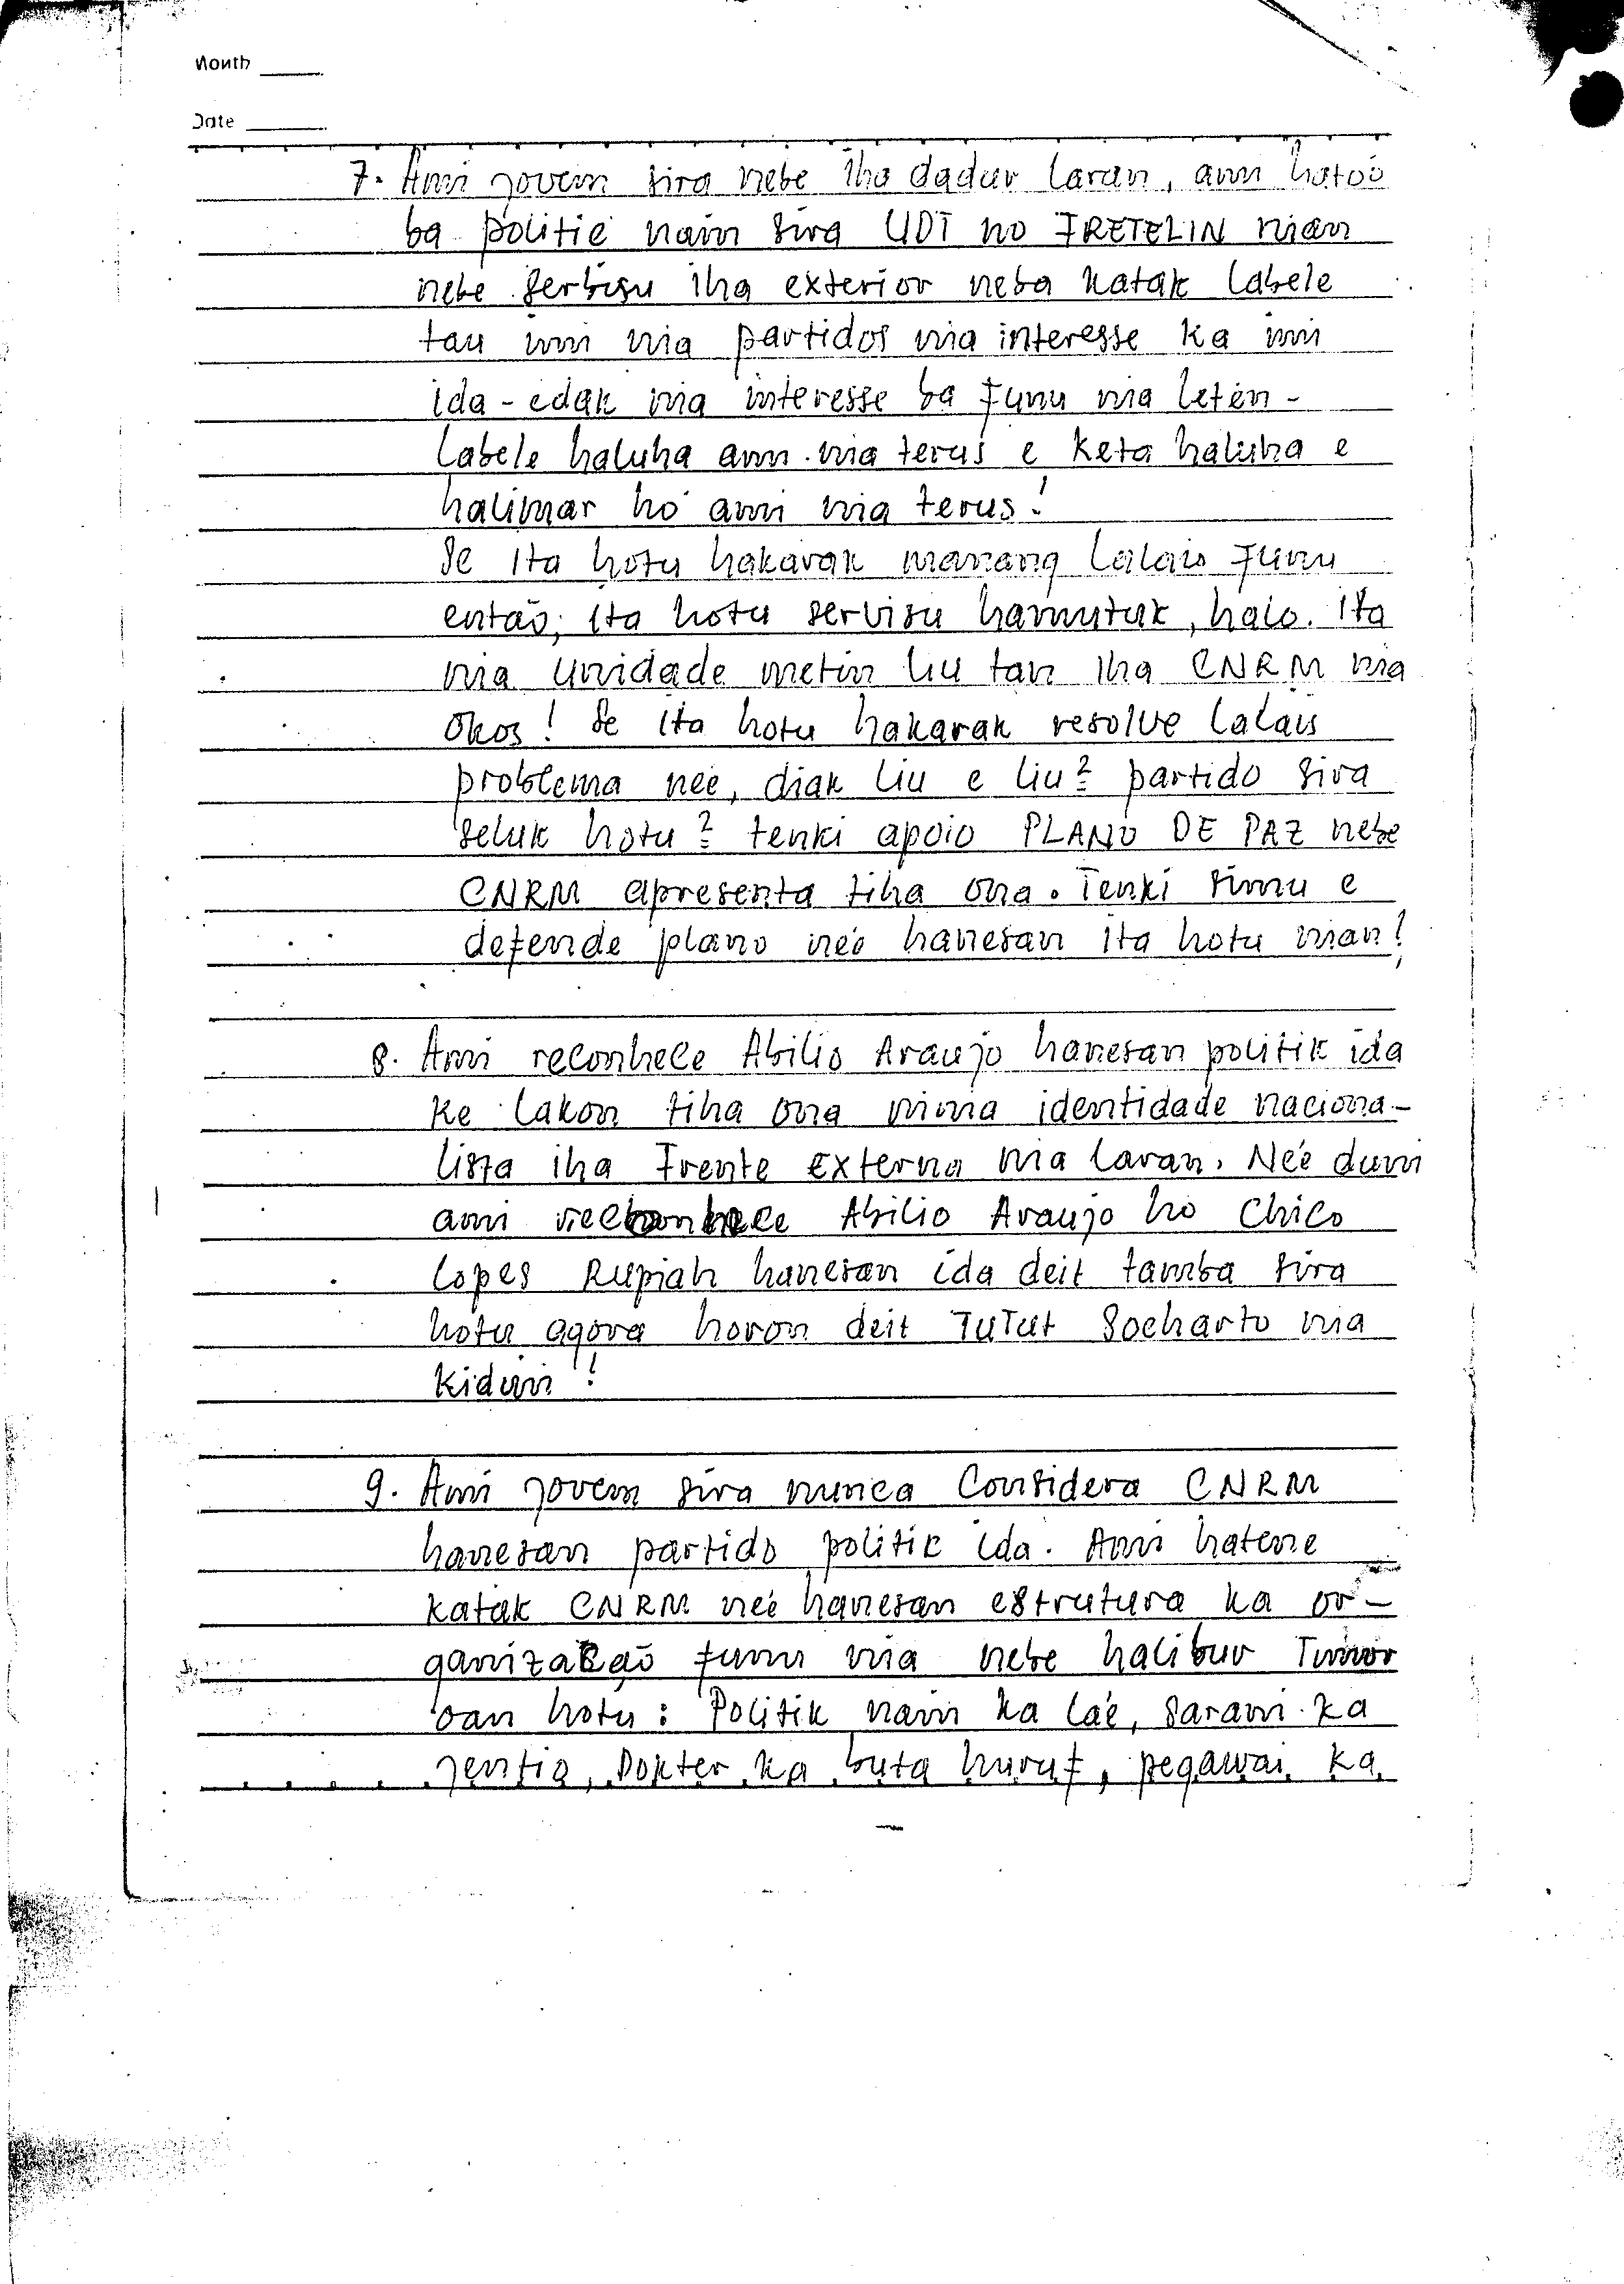 Month
Date
7. Ami jovem sira nebe iha dadur laran, ami hato'o
ba politic nain sira UDT no FRETELIN nian
nebe serbisu iha exterior neba katak labele
tau imi nia partidos nia interesse ka imi
ida-edak nia interesse ba funu nia leten-
labele haluha ami nia terus e keta haluha e
halimar ho ami nia terus!
Se ita hotu hakarak manang lalais funu
entaō, ita hotu servisu hamutuk, halo. Ita
nia unidade metin liu tan iha CNRM nia
okos! Se ita hotu hakarak resolve lalais
problema neé, diak liu e liu² partido sira
seluk hotu² tenki apoio PLANO DE PAZ nebe
CNRM apresenta tiha ona. Tenki simu e
defende plano neé hanesan ita hotu nian!
8. Ami reconhece Abilio Araujo hanesan politik ida
ke lakon tiha ona ninia identidade naciona-
lista iha Frente Externa nia laran. Neé duni
ami reconhece Abilio Araujo ho Chico
Lopes Rupiah hanesan ida deit tamba sira
hotu agora horon deit TuTut Soeharto nia
kidun!
9. Ami jovem sira nunca considera CNRM
hanesan partido politic ida. Ami hatene
katak CNRM neé hanesan estrutura ka or-
ganizaçaō funu nia nebe halibur Timor
oan hotu: Politik nain ka laé, sarani ka
jentio, Dokter ka buta huruf, pegawai ka